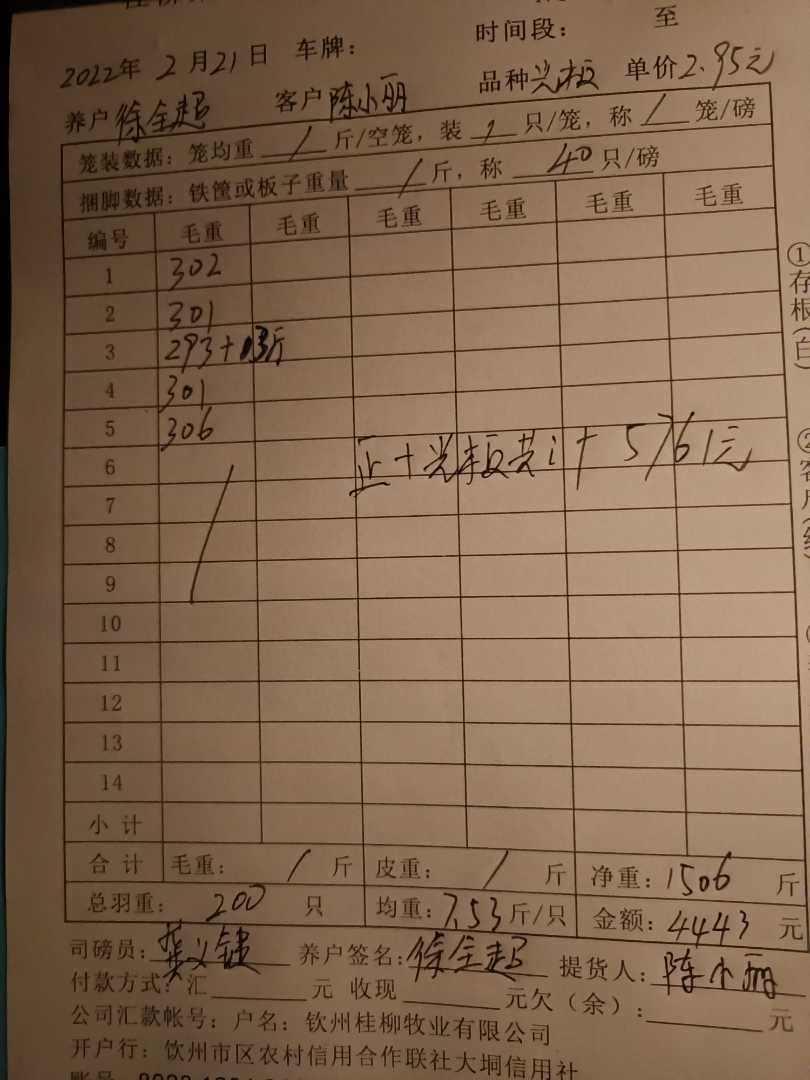 时间段： 至
2022年 2月21日 车牌：
养户 徐全超 客户 陈小丽 品种 光板 单价 2.95元
笼装数据：笼均重 / 斤/空笼，装 / 只/笼，称 / 笼/磅
捆脚数据：铁筐或板子重量 / 斤，称 40 只/磅
编号 毛重 毛重 毛重 毛重 毛重 毛重
1 302
2 301
3 293+ 斤
4 301
5 306
6 正十光板共计 5761元
7
8
9
10
11
12
13
14
小计
合计 毛重： / 斤 皮重： / 斤 净重：1506 斤
总羽重： 200 只 均重：7.53斤/只 金额：4443 元
司磅员： 养户签名：徐全超 提货人：陈小丽
付款方式：汇 元 收现 元欠（余）： 元
公司汇款帐号：户名：钦州桂柳牧业有限公司
开户行：钦州市区农村信用合作联社大垌信用社
①存根（白）
②客户